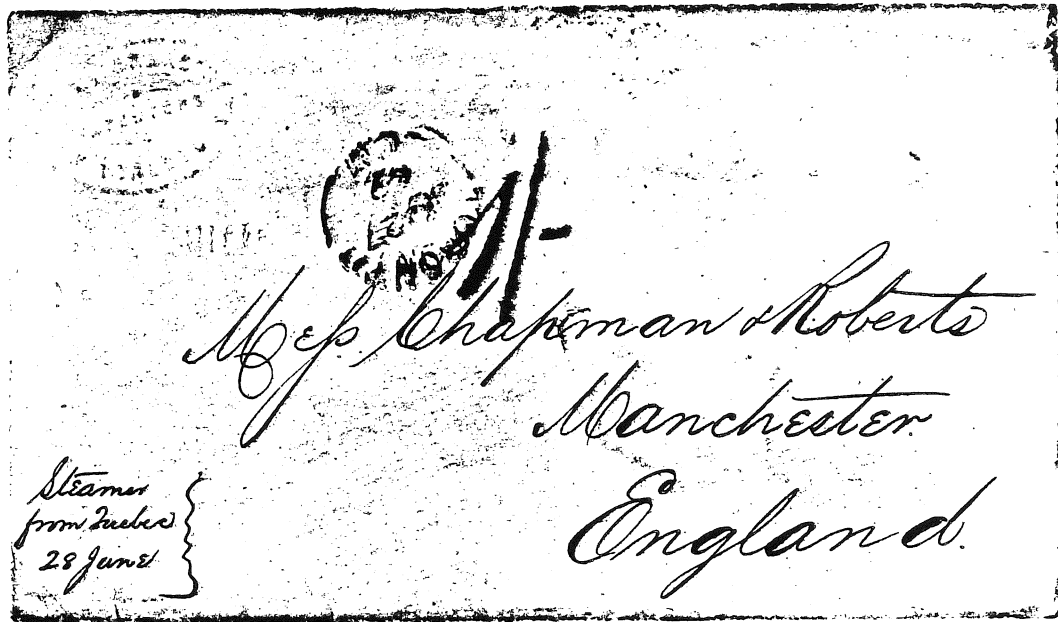 1/-
Mess Chapman & Roberts
Manchester
England.
Steamer
from Quebec
28 June